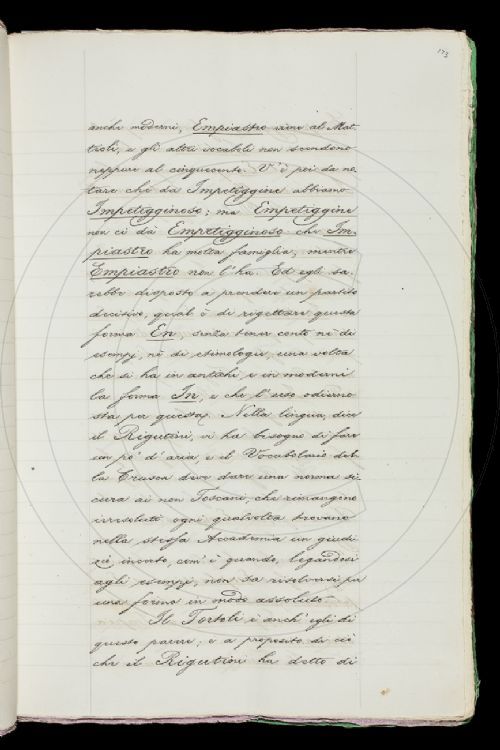 173
anche moderni, Empiastro viene al Mat-
tioli, e gli altri vocaboli non scendono
neppure al cinquecento. V'è poi da no-
tare che da Impetiggine abbiamo
Impetigginoso; ma Empetiggine
non ci dà Empetigginoso che Im-
piastro ha molta famiglia, mentre
Empiastro non l'ha. Ed egli sa-
rebbe disposto a prendere un partito
decisivo, qual'è di rigettare questa
forma En, senza tener conto nè di
esempj, nè di etimologie, una volta
che si ha in antichi, e in moderni
la forma In, e che l'uso odierno
sta per questa. Nella lingua, dice
il Rigutini, vi ha bisogno di fare
un po' d'aria, e il Vocabolario del-
la Crusca deve dare una norma si-
cura ai non Toscani, che rimangono
irresoluti ogni qualvolta trovano
nella stessa Accademia un giudi-
zio incerto, com'è quando, legandosi
agli esempj, non sa risolversi per
una forma in modo assoluto.
Il Tortoli è anch'egli di
questo parere; e a proposito di ciò
che il Rigutini ha detto di